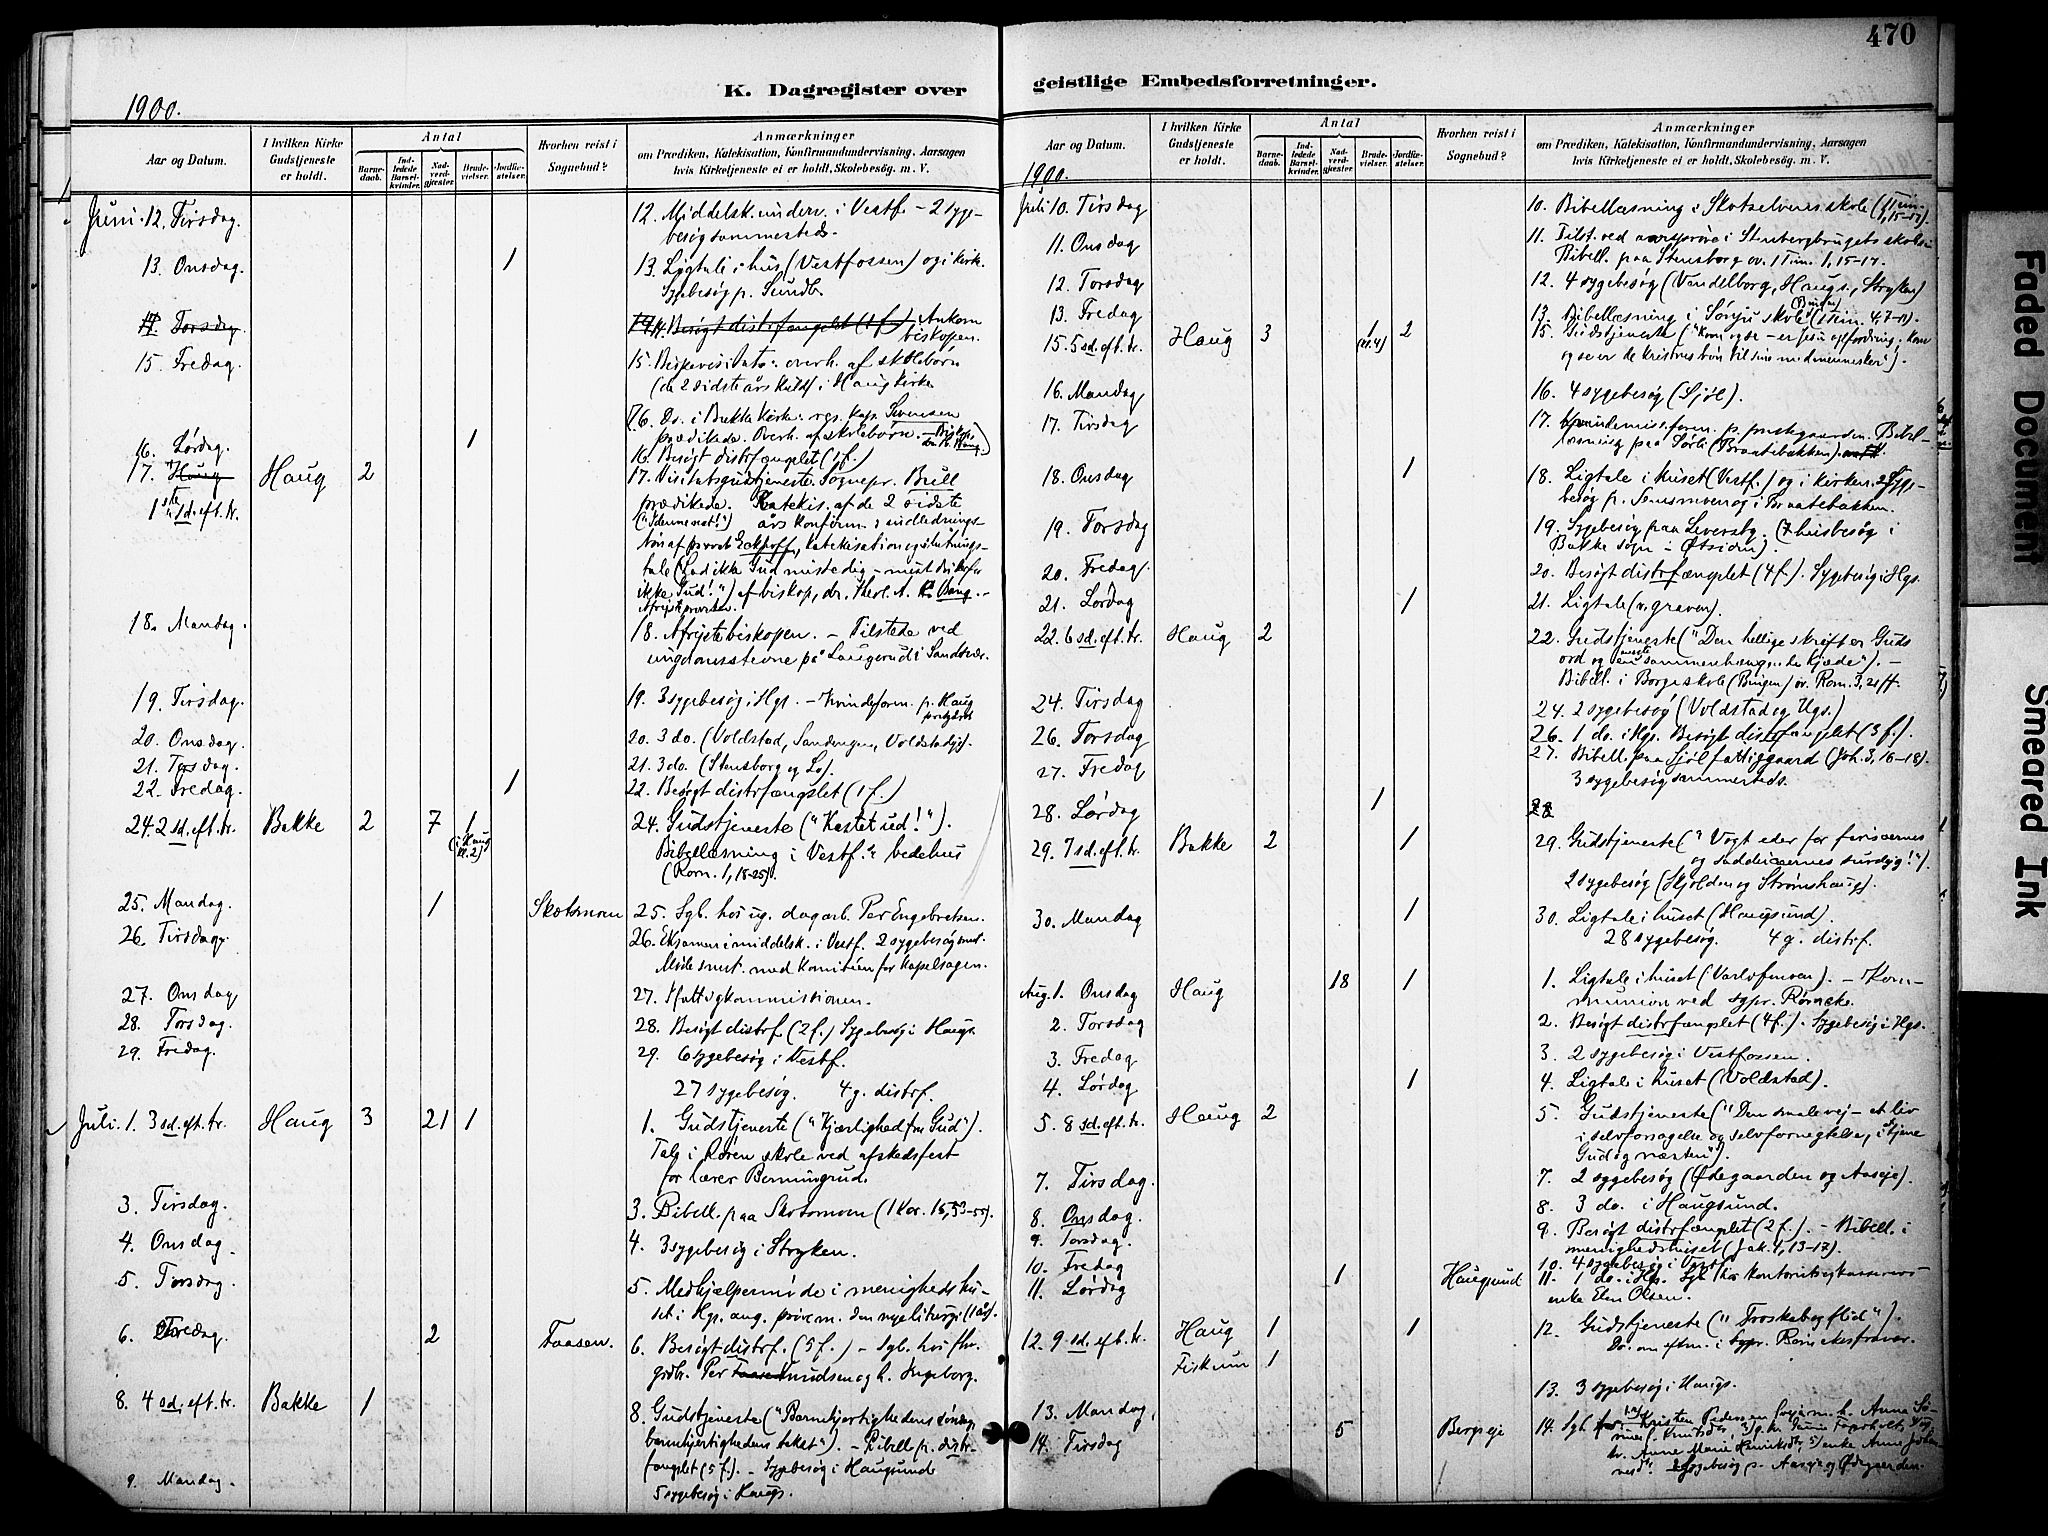 470
K. Dagregister over
geistlige Embedsforretninger.
1900.
Aar og Datum.
I hvilken Kirke Gudstjeneste er holdt.
Antal
Barne-daab.
Ind-ledede Barsel-kvinder.
Nad-verd-gjæster
Brude-vielser.
Jordfæ-stelser.
Hvorhen reist i Sognebud?
Anmærkninger
om Prædiken, Katekisation, Konfirmandundervisning, Aarsagen
hvis Kirketjeneste ei er holdt, Skolebesög. m. V.
Juni 12. Tirsdag. 12. Middelsk. underv. i Vestf. – 2 syge-
besøg sammesteds.
13. Onsdag. 1 13. Ligtale i hus (Vestfossen) og i kirk.
Sygebesøg p. Sundb.
14 Torsdag 14. Besøgt distrfængslet (1 f.) Ankom
biskopen.
15. Fredag. 15. Bispevisitats: overh. af skolebørn
(de 2 sidste års kuld) i Haug kirke
16. Do. i Bakke kirke: res. kap. Svensen
16. Lørdag. 1 prædikede. Overh. af skolebørn.
16. Besøgt distrfængslet (1 f.)
17. Haug Haug 2 17. Visitatsgudstjeneste. Sognepr. Brill
1ste sd. eft. tr. prædikede. Katekis. af de 2 sidste
års konfirm.: indlednings-
bøn af provst Eckhoff, katekisation og slutnings-
tale (Lad ikke Gud miste dig – mist du
ikke Gud!") af biskop, dr. theol. A. Chr. Bang. –
18. Mandag. 18. Afreiste biskopen. – Tilstede ved
ungdomsstevne på Laugerud i Sandsvær.
19. Tirsdag. 19. 3 sygebesøg i Hgs. – Kvindeforn. p. Haug
prstgård
20. Onsdag. 20. 3 do. (Voldstad, Sandengen, Voldstadgjs).
21. Torsdag. 21. 3 do. (Stensborg og Lo).
22. Fredag. 1 22. Besøgt distrfængslet (1 f.)
24. 2 sd. eft. tr. Bakke 2 7 1 24. Gudstjeneste ("Kastet ud!").
(i Haug kl. 2) Bibellæsning i Vestf.s bedehus
(Rom. 1, 18-25).
25. Mandag. 1 Skotsmoen 25. Sgb. hos ug. dagarb. Per Engebretsen.
26. Tirsdag. 26. Eksamen i middelsk. i Vestf. 2 sygebesøg smst.
Møde smst. med komitéen for kapelsagen.
27. Onsdag 27. Fattigkommissionen.
28. Torsdag. 28. Besøgt distrf. (2 f.) Sygebesøg i Haugs.
29. Fredag. 29. 6 sygebesøg i Vestf.
27 sygebesøg. 4 g. distrf.
Juli. 1. 3 sd. eft. tr. Haug 3 21 1 1. Gudstjeneste ("Kjærlighed fra Gud").
Tale i Røren skole ved afskedsfest
for lærer Berningrud.
3. Tirsdag. 3. Bibell. paa Skotsmoen (1 Kor. 15, 53-55).
4. Onsdag. 4. 3 sygebesøg i Stryken.
5. Torsdag. 5. Medhjælpermøde i menighedshu-
set i Hgs. ang. prøve m. den nye liturgi (1 år).
6. Fredag. 2 Faasen. 6. Besøgt distrf. (5 f.) – Sgb. hos fhv.
grdbr. Per Knudsen og h. Ingeborg.
8. 4 sd. eft. tr. Bakke 1 8. Gudstjeneste ("Barmhjertighedens søndag,
barmhjertighedens tekst"). – Bibell. p. distr-
fængslet (5 f.). – Sygebesøg i Haugsund.
9. Mandag. 5 sygebesøg i Haugs.
Aar og Datum.
I hvilken Kirke Gudstjeneste er holdt.
Antal
Barne-daab.
Ind-ledede Barsel-kvinder.
Nad-verd-gjæster
Brude-vielser.
Jordfæ-stelser.
Hvorhen reist i Sognebud?
Anmærkninger
om Prædiken, Katekisation, Konfirmandundervisning, Aarsagen
hvis Kirketjeneste ei er holdt, Skolebesög. m. V.
1900.
Juli 10. Tirsdag 10. Bibellæsning i Skotselvens skole (1 Tim. 1, 15-17).
11. Onsdag 11. Tilst. ved aarsprøve i Stenbergbrugets skole.
Bibell. paa Stensborg ov. 1 Tim. 1, 15-17.
12. Torsdag 12. 4 sygebesøg (Vendelborg, Haugs., Stryken)
13. Fredag 13. Bibellæsning i skole (1 Tim. 4, 7-11).
15. 5 sd. eft. tr. Haug 3 1 2 15. Gudstjeneste ("Kom og se – er Jesu opfordring; kom
(kl. 4) og se er de kristnes bøn til sine medmennesker").
16. Mandag 16. 4 sygebesøg (Sjøl).
17. Tirsdag 17. Kvindemissforen. p. prestegaarden. Bibel-
læsning paa Sørli (Braatebakken).
18. Onsdag 1 18. Ligtale i huset (Vestf.) og i kirken. 2 Syge-
besøg p. Semsmoen og i Braatebakken.
19. Torsdag 19. Sygebesøg paa Leversby. (7 husbesøg i
Bakke sogn – Østsiden).
20. Fredag. 20. Besøgt distrfængslet (4 f.). Sygebesøg i Hgs.
21. Lørdag 1 21. Ligtale (v. graven).
22. 6 sd. eft. tr. Haug 2 22. Gudstjeneste ("Den hellige skrift er Guds
ord og sammenhængende kjæde"). –
Bibell. i Borge skole (Bingen) ov. Rom. 3, 21 ff.
24. Tirsdag 24. 2 sygebesøg (Voldstad og Hgs.)
26. Torsdag 26. 1 do. i Hgs. Besøgt distrfængslet (3 f.).
27. Fredag 27. Bibell. paa Sjøl fattiggaard (Joh. 3, 16-18).
3 sygebesøg sammesteds.
28. Lørdag 1 28
29. 7 sd. eft. tr. Bakke 2 1 29. Gudstjeneste ("Vogt eder for farisæernes
og saddukæernes surdeig!").
2 sygebesøg (Skjolden og Strømshaug).
30. Mandag 1 30. Ligtale i huset (Haugsund).
28 sygebesøg. 4 g. distrf.
Aug. 1. Onsdag Haug 18 1 1. Ligtale i huset (Varlofmoen). – Kom-
munion ved sgpr. Røncke.
2. Torsdag 2. Besøgt distrfængslet (4 f.). Sygebesøg i Hgs.
3. Fredag 3. 2 sygebesøg i Vestfossen.
4. Lørdag 1 4. Ligtale i huset (Voldstad).
5. 8 sd. eft. tr. Haug 2 5. Gudstjeneste ("Den smale vej – et liv
i selvforsagelse og selvfornegtelse, i at tjene
Gud og næsten").
7. Tirsdag. 7. 2 sygebesøg (Ødegaarden og Aaseje).
8. Onsdag. 8. 3 do. i Haugsund.
9. Torsdag. 9. Besøgt distrfængslet (2 f.). – Bibell. i
menighedshuset (Jak. 4, 13-17).
10. Fredag 10. 4 sygebesøg i Vestf.
11. Lørdag 1 Haugsund 11. 1 do. i Hgs. Sgb. hos
enke Elen Olsen.
12. 9 sd. eft. tr. Haug 1 1 12. Gudstjeneste ("Troskab og flid").
Fiskum 1 Do. om eftm. i sgpr. Rønckes fravær.
13. Mandag, 13. 3 sygebesøg i Haugs.
14. Tirsdag 5 Bergseje 14. Sgb. Kristen Pedersen
Anne Marie enke Anne
Sygebesøg p. Aaseje og Ødegaarden.
Faded Document
Smeared Ink